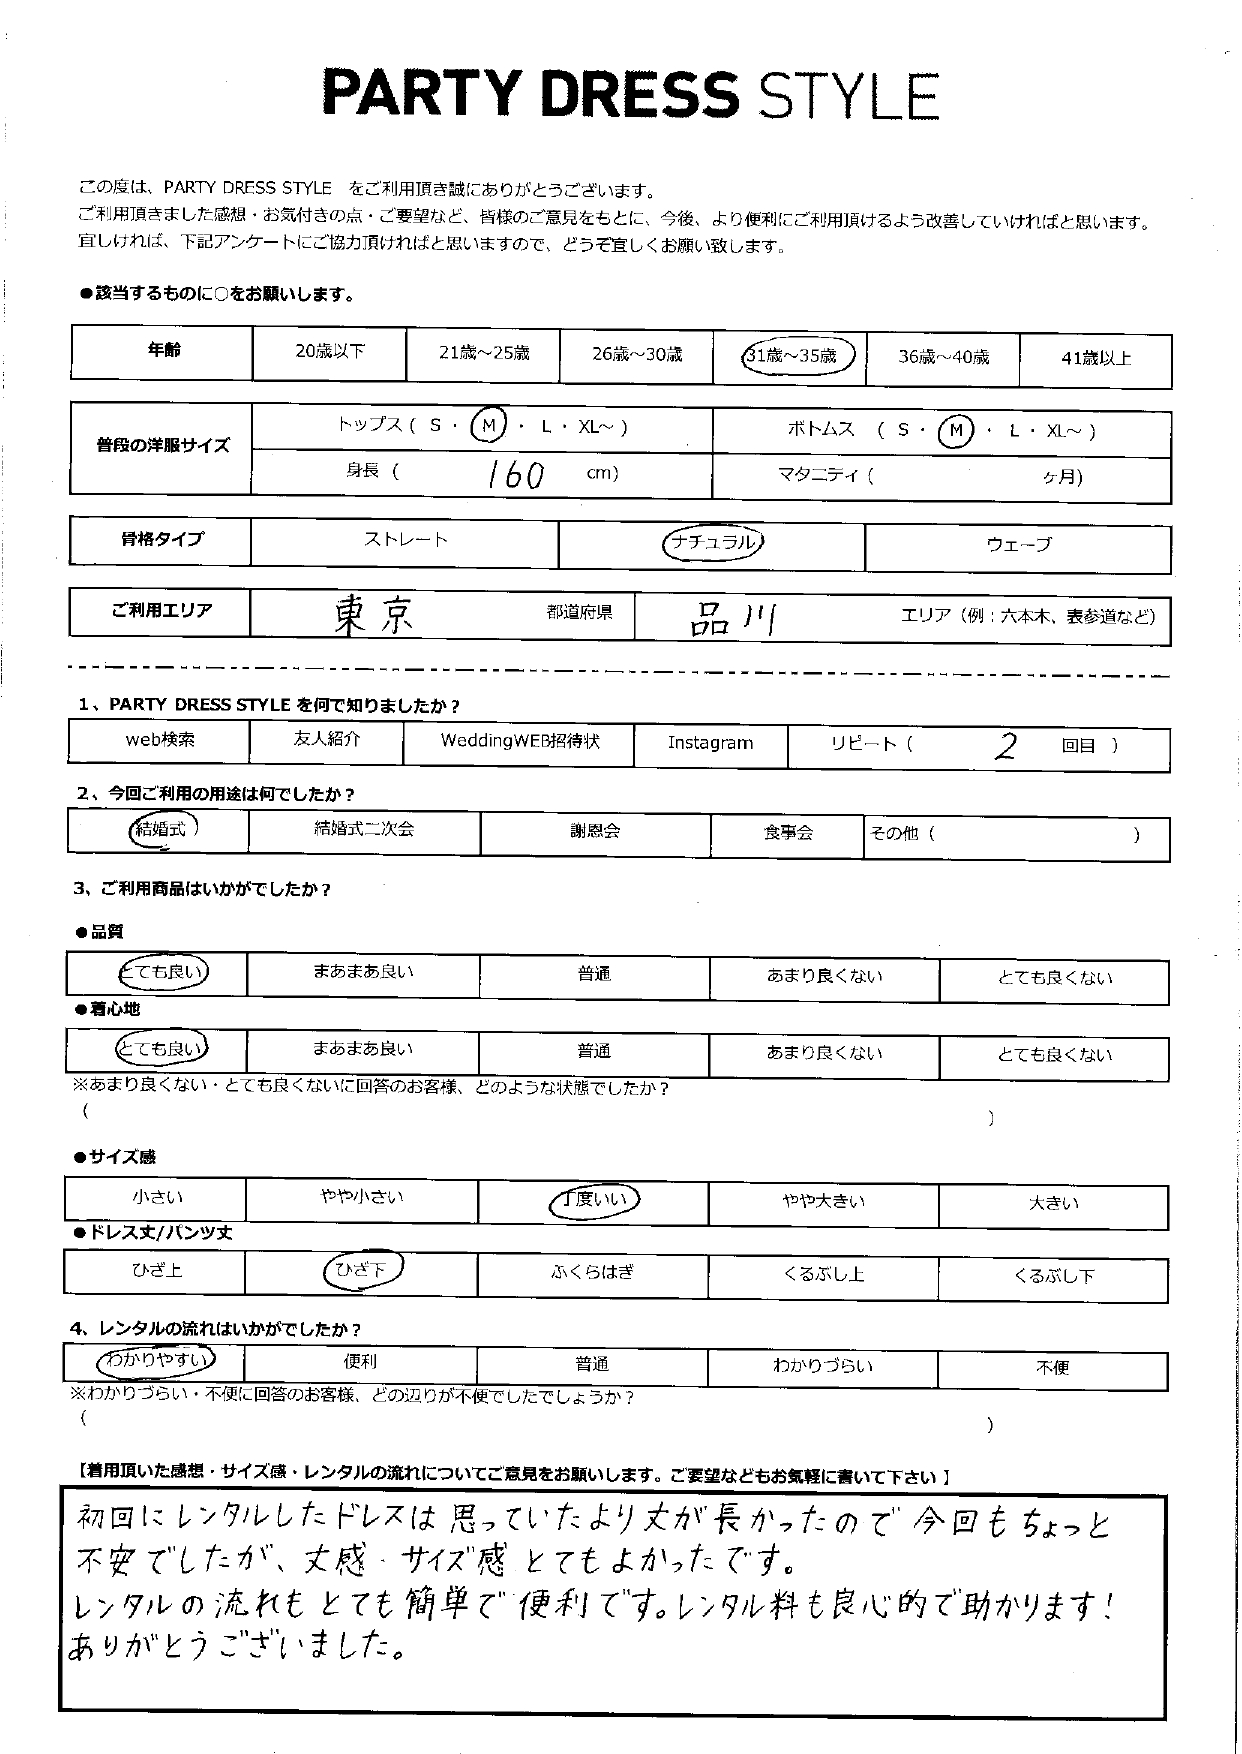 PARTY DRESS STYLE
この度は、PARTY DRESS STYLE をご利用頂き誠にありがとうございます。
ご利用頂きました感想・お気付きの点・ご要望など、皆様のご意見をもとに、今後、より便利にご利用頂けるよう改善していければと思います。
宜しければ、下記アンケートにご協力頂ければと思いますので、どうぞ宜しくお願い致します。
●該当するものに○をお願いします。
年齢 20歳以下 21歳～25歳 26歳～30歳 31歳～35歳 36歳～40歳 41歳以上
普段の洋服サイズ トップス ( S ・ M ・ L ・ XL～ ) ボトムス ( S ・ M ・ L ・ XL～ )
身長 ( 160 cm) マタニティ ( ヶ月)
骨格タイプ ストレート ナチュラル ウェーブ
ご利用エリア 東京 都道府県 品川 エリア（例：六本木、表参道など）
1、PARTY DRESS STYLE を何で知りましたか？
web検索 友人紹介 WeddingWEB招待状 Instagram リピート ( 2 回目 )
2、今回ご利用の用途は何でしたか？
結婚式 ) 結婚式二次会 謝恩会 食事会 その他 ( )
3、ご利用商品はいかがでしたか？
●品質
とても良い まあまあ良い 普通 あまり良くない とても良くない
●着心地
とても良い まあまあ良い 普通 あまり良くない とても良くない
※あまり良くない・とても良くないに回答のお客様、どのような状態でしたか？
( )
●サイズ感
小さい やや小さい 丁度いい やや大きい 大きい
●ドレス丈/パンツ丈
ひざ上 ひざ下 ふくらはぎ くるぶし上 くるぶし下
4、レンタルの流れはいかがでしたか？
わかりやすい 便利 普通 わかりづらい 不便
※わかりづらい・不便に回答のお客様、どの辺りが不便でしたでしょうか？
( )
【着用頂いた感想・サイズ感・レンタルの流れについてご意見をお願いします。ご要望などもお気軽に書いて下さい】
初回にレンタルしたドレスは思っていたより丈が長かったので今回もちょっと
不安でしたが、丈感・サイズ感とてもよかったです。
レンタルの流れもとても簡単で便利です。レンタル料も良心的で助かります！
ありがとうございました。